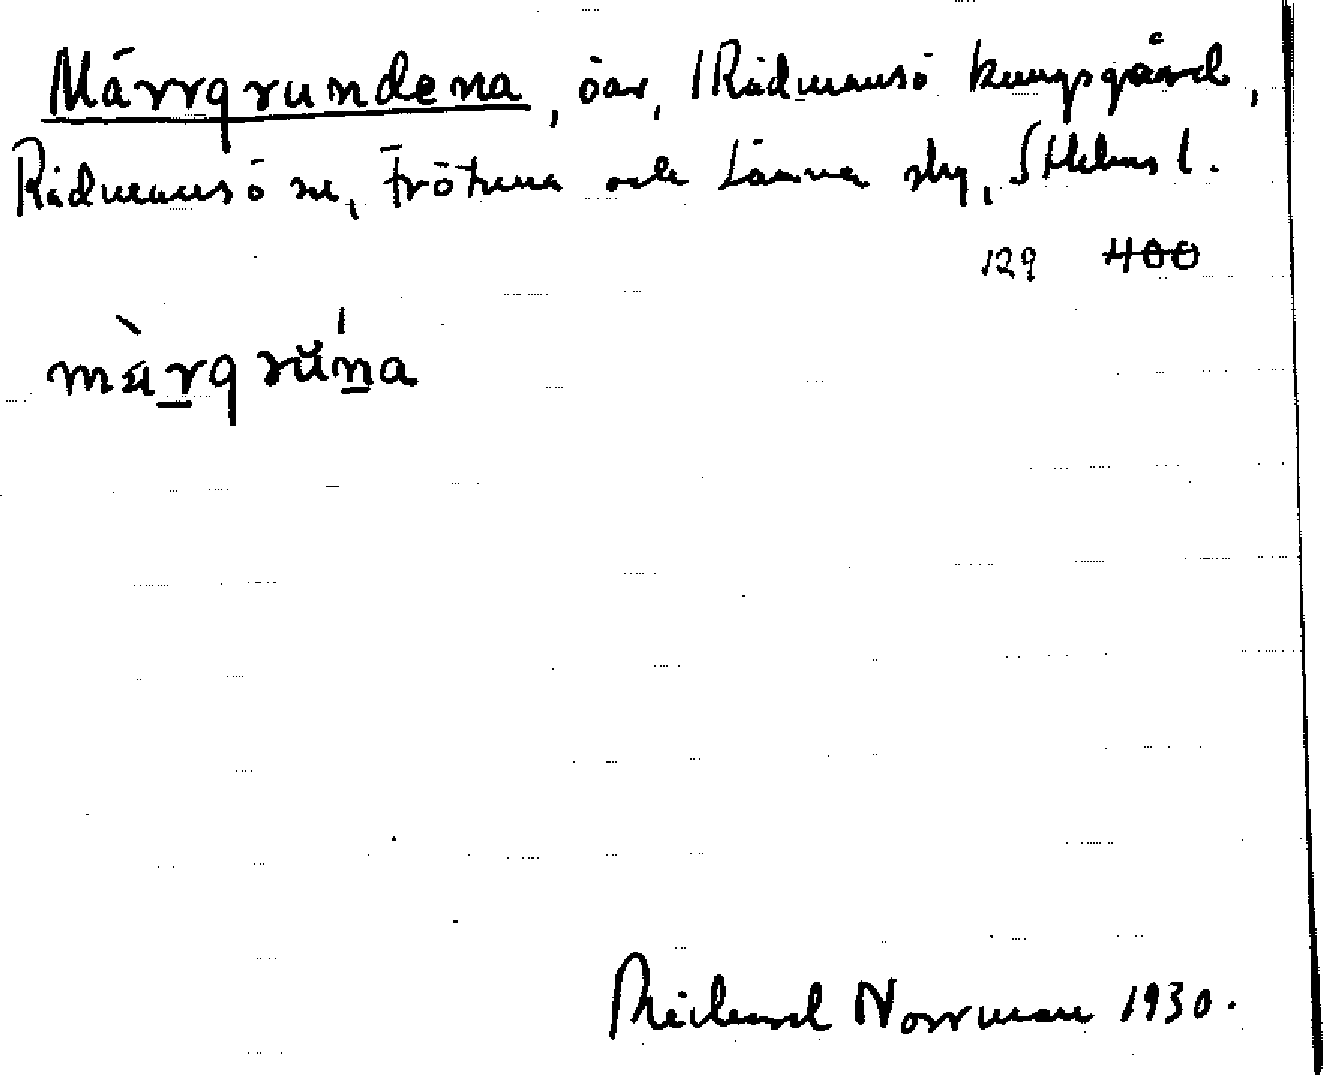 Märrgrundena, öar, 1 Rådmansö kungsgård,
Rådmansö sn, Frötuna och Länna slg, Sthlms l.
129 400
màrgrŭna
Richard Norrman 1930.